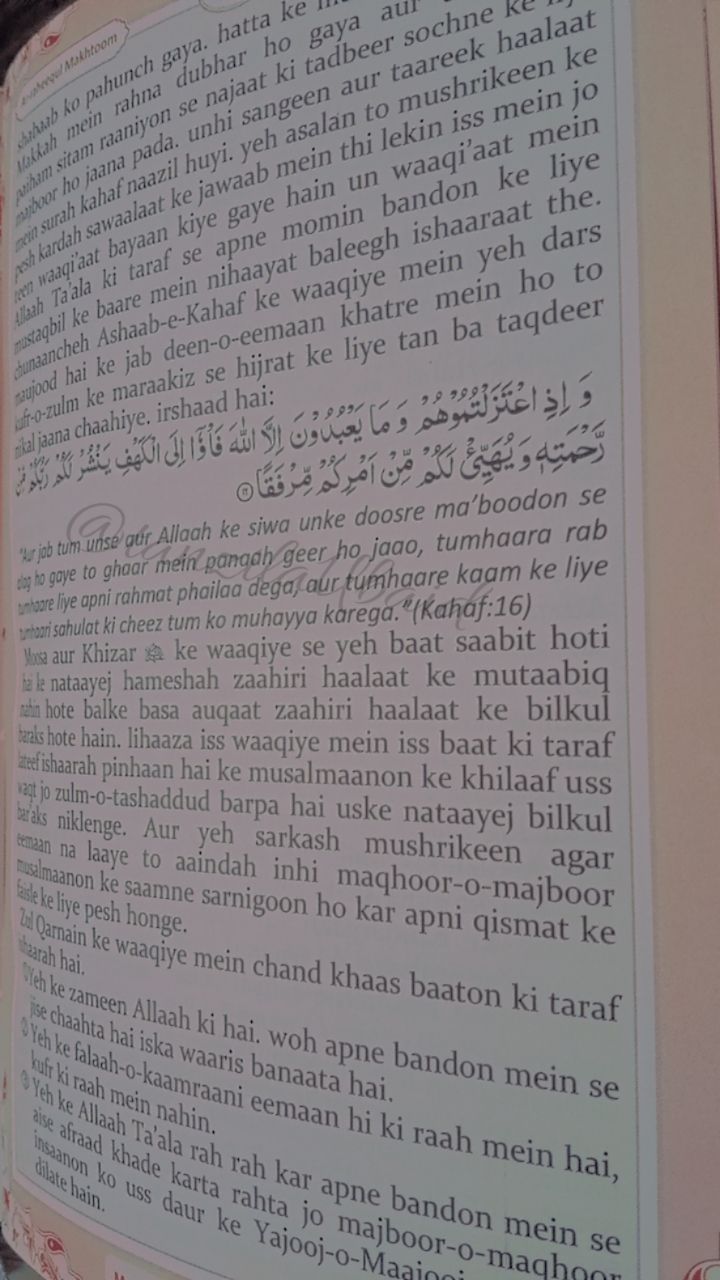 Raheequl Makhtoom
shabaab ko pahunch gaya. hatta ke
Makkah mein rahna dubhar ho gaya aur
paiham sitam raaniyon se najaat ki tadbeer sochne ke
majboor ho jaana pada. unhi sangeen aur taareek haalaat
mein surah kahaf naazil huyi. yeh asalan to mushrikeen ke
pesh kardah sawaalaat ke jawaab mein thi lekin iss mein jo
teen waaqi'aat bayaan kiye gaye hain un waaqi'aat mein
Allaah Ta'ala ki taraf se apne momin bandon ke liye
mustaqbil ke baare mein nihaayat baleegh ishaaraat the.
chunaancheh Ashaab-e-Kahaf ke waaqiye mein yeh dars
maujood hai ke jab deen-o-eemaan khatre mein ho to
kufr-o-zulm ke maraakiz se hijrat ke liye tan ba taqdeer
nikal jaana chaahiye. irshaad hai:
وَ اِذِ اعْتَزَلْتُمُوْهُمْ وَ مَا يَعْبُدُوْنَ اِلَّا اللّٰهَ فَاْوٗٓا اِلَى الْكَهْفِ يَنْشُرْ لَكُمْ رَبُّكُمْ مِّنْ
رَّحْمَتِهٖ وَ يُهَيِّئْ لَكُمْ مِّنْ اَمْرِكُمْ مِّرْفَقًا ﴿۱۶﴾
"Aur jab tum unse aur Allaah ke siwa unke doosre ma'boodon se
alag ho gaye to ghaar mein panaah geer ho jaao, tumhaara rab
tumhaare liye apni rahmat phailaa dega, aur tumhaare kaam ke liye
tumhaari sahulat ki cheez tum ko muhayya karega."(Kahaf:16)
Moosa aur Khizar ke waaqiye se yeh baat saabit hoti
hai ke nataayej hameshah zaahiri haalaat ke mutaabiq
nahin hote balke basa auqaat zaahiri haalaat ke bilkul
baraks hote hain. lihaaza iss waaqiye mein iss baat ki taraf
lateef ishaarah pinhaan hai ke musalmaanon ke khilaaf uss
waqt jo zulm-o-tashaddud barpa hai uske nataayej bilkul
bar'aks niklenge. Aur yeh sarkash mushrikeen agar
eemaan na laaye to aaindah inhi maqhoor-o-majboor
musalmaanon ke saamne sarnigoon ho kar apni qismat ke
faisle ke liye pesh honge.
Zul Qarnain ke waaqiye mein chand khaas baaton ki taraf
ishaarah hai.
① Yeh ke zameen Allaah ki hai. woh apne bandon mein se
jise chaahta hai iska waaris banaata hai.
② Yeh ke falaah-o-kaamraani eemaan hi ki raah mein hai,
kufr ki raah mein nahin.
③ Yeh ke Allaah Ta'ala rah rah kar apne bandon mein se
aise afraad khade karta rahta jo majboor-o-maqhoor
insaanon ko uss daur ke Yajooj-o-Maajooj
dilate hain.